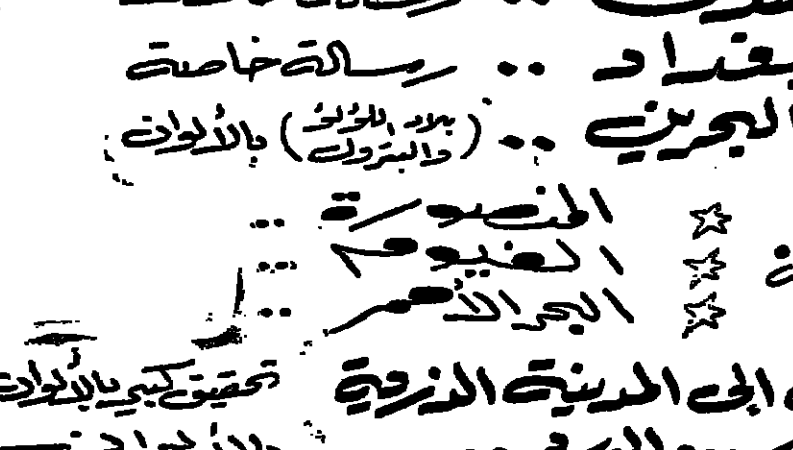 بغداد .. رسالة خاصة
البحرين .. (بلاد اللؤلؤ والبترول) بالألوان
المنصورة ..
الفيوم ..
البحر الأحمر ..
إلى المدينة الذرية تحقيق كبير بالألوان